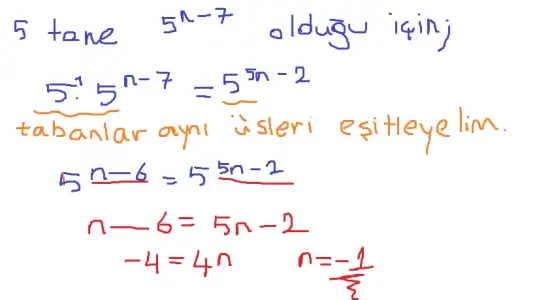 5 tane 5^{n-7} olduğu için;
5^1 . 5^{n-7} = 5^{5n-2}
tabanlar aynı üsleri eşitleyelim.
5^{n-6} = 5^{5n-2}
n-6 = 5n-2
-4 = 4n n = -1